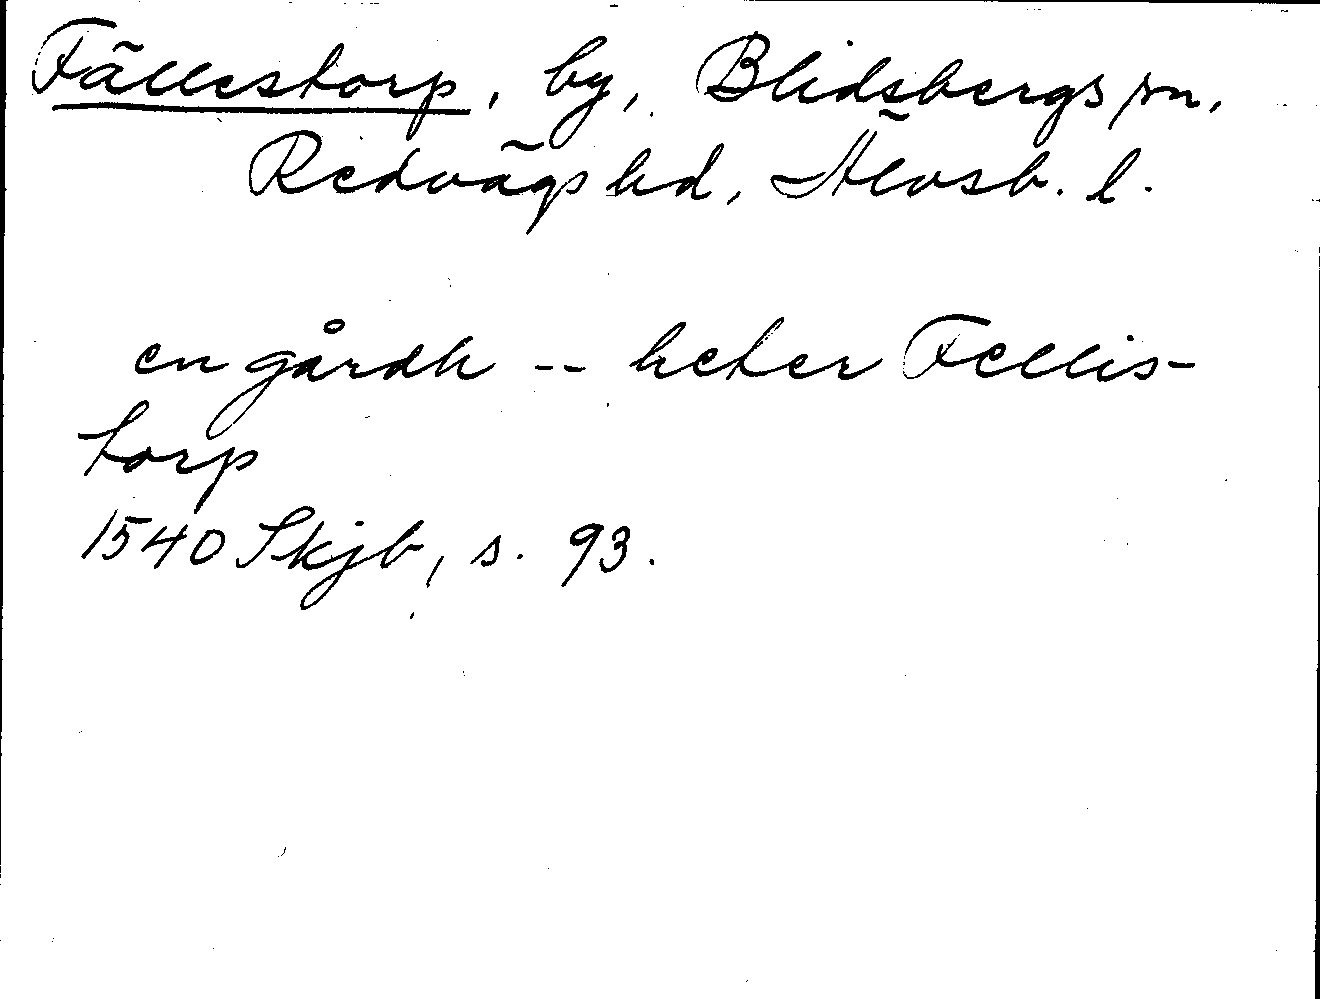 Fällestorp, by, Blidsbergs sn,
Redvägs hd, Älvsb. l.
en gårdh -- heter Fellis-
torp
1540 Skjb, s. 93.